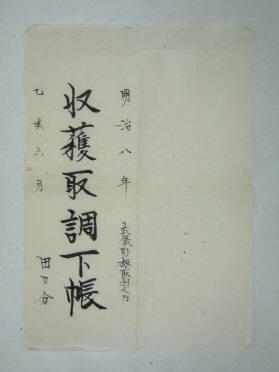 明治八年
武儀郡
収穫取調下帳
乙亥六月
田方分